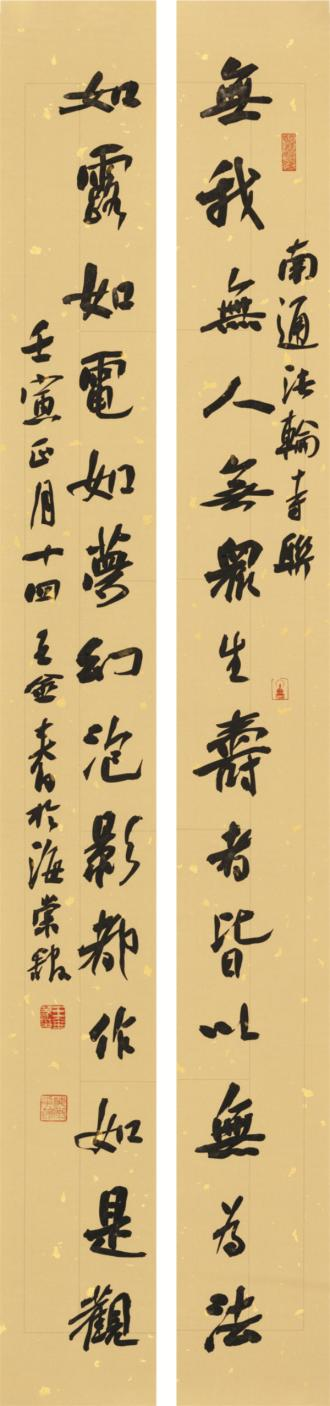 南通法輪寺聯
無我無人無眾生壽者皆以無為法
如露如電如夢幻泡影都作如是觀
壬寅正月十四王金春於海棠館